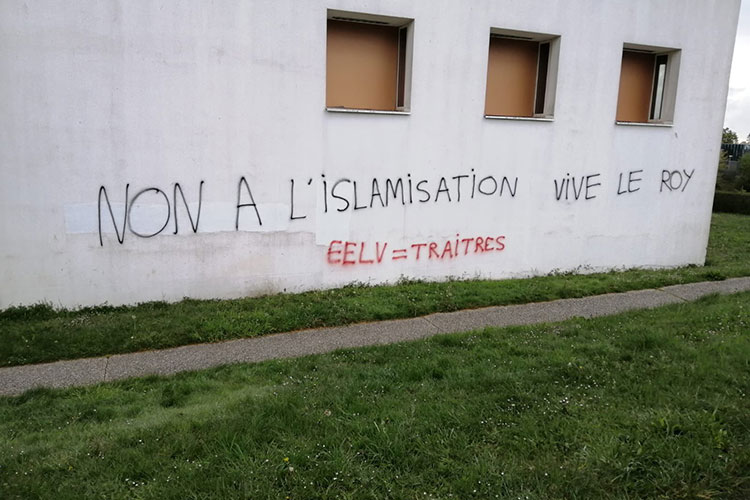 NON A L'İSLAMİSATİON VİVE LE ROY
EELV = TRAİTRES